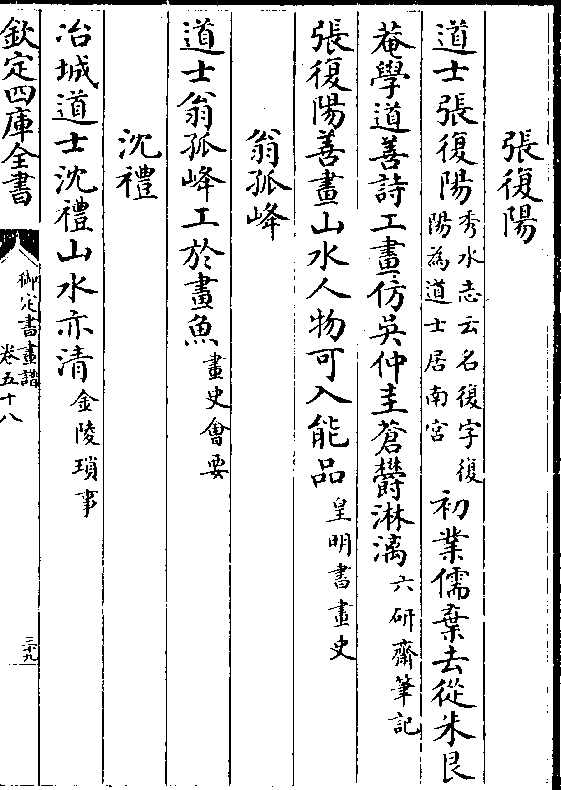 張復陽
道士張復陽秀水志云名復字復陽為道士居南宮初業儒棄去從朱艮
菴學道善詩工畫仿吳仲圭蒼鬱淋漓六研齋筆記
張復陽善畫山水人物可入能品皇明書畫史
翁孤峰
道士翁孤峰工於畫魚畫史會要
沈禮
冶城道士沈禮山水亦清金陵瑣事
欽定四庫全書
御定書畫譜
卷五十八
三十九